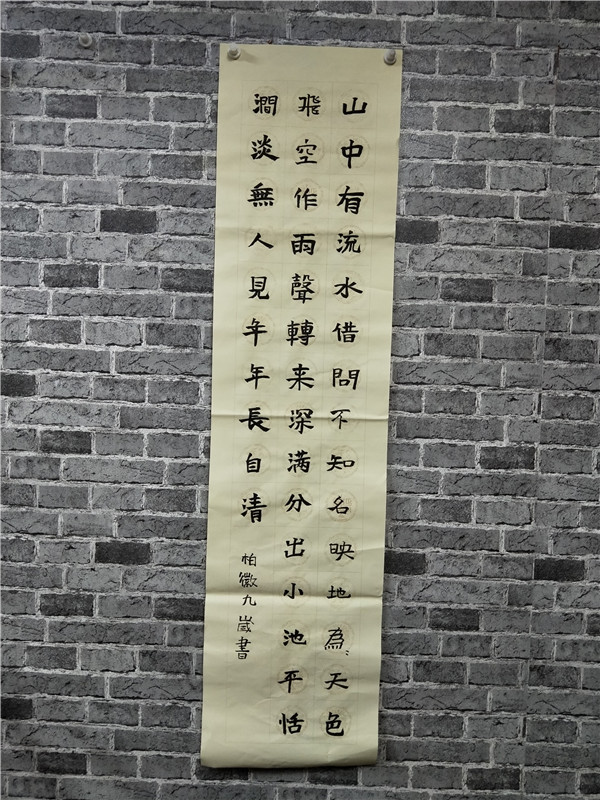 山中有流水借問不知名映地為天色
飛空作雨聲轉来深满分出小池平恬
澗淡無人見年年長自清
柏徽九歲書